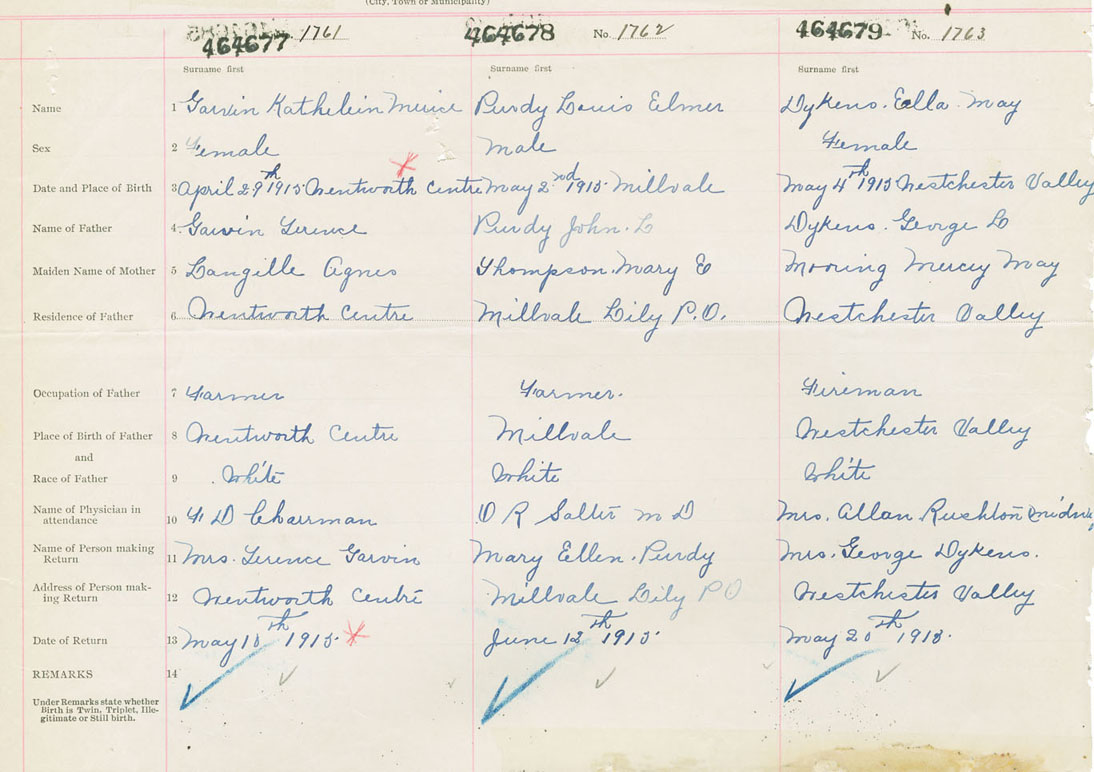 (City, Town or Municipality)
464677 1761 464678 No. 1762 464679 No. 1763
Surname first Surname first Surname first
Name 1 Garvin Kathelein Purdy Louis Elmer Dykens. Eella May
Sex 2 Female Male Female
Date and Place of Birth 3 April 29th 1915 Wentworth Centre May 2nd 1915. Millvale May 4th 1915 Westchester Valley
Name of Father 4 Garvin Terence Purdy John. L Dykens. George L
Maiden Name of Mother 5 Langille Agnes Thompson. Mary E Mooring Mercy May
Residence of Father 6 Wentworth Centre Millvale Lily P.O. Westchester Valley
Occupation of Father 7 Farmer Farmer. Fireman
Place of Birth of Father 8 Wentworth Centre Millvale Westchester Valley
and
Race of Father 9 White White White
Name of Physician in
attendance 10 F D Charman O R Salter M D Mrs. Allan Rushton
Name of Person making
Return 11 Mrs. Terence Garvin Mary Ellen. Purdy Mrs. George Dykens.
Address of Person mak-
ing Return 12 Wentworth Centre Millvale Lily P O Westchester Valley
Date of Return 13 May 1915. June 12th 1915. May 20th
REMARKS 14
Under Remarks state whether
Birth is Twin, Triplet, Ille-
gitimate or Still birth.